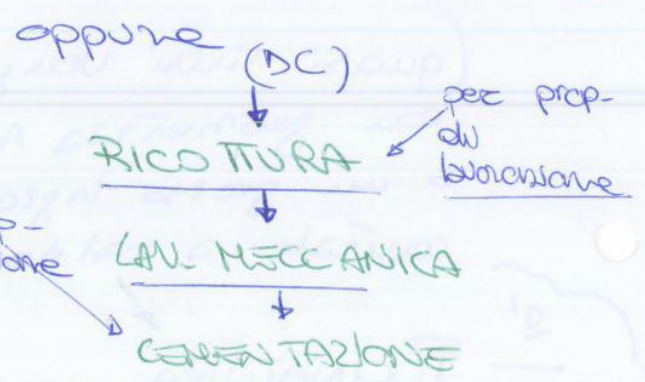 oppure
(DC)
per prop-
di
lavorazione
RICOTTURA
LAV. MECCANICA
CEMENTAZIONE